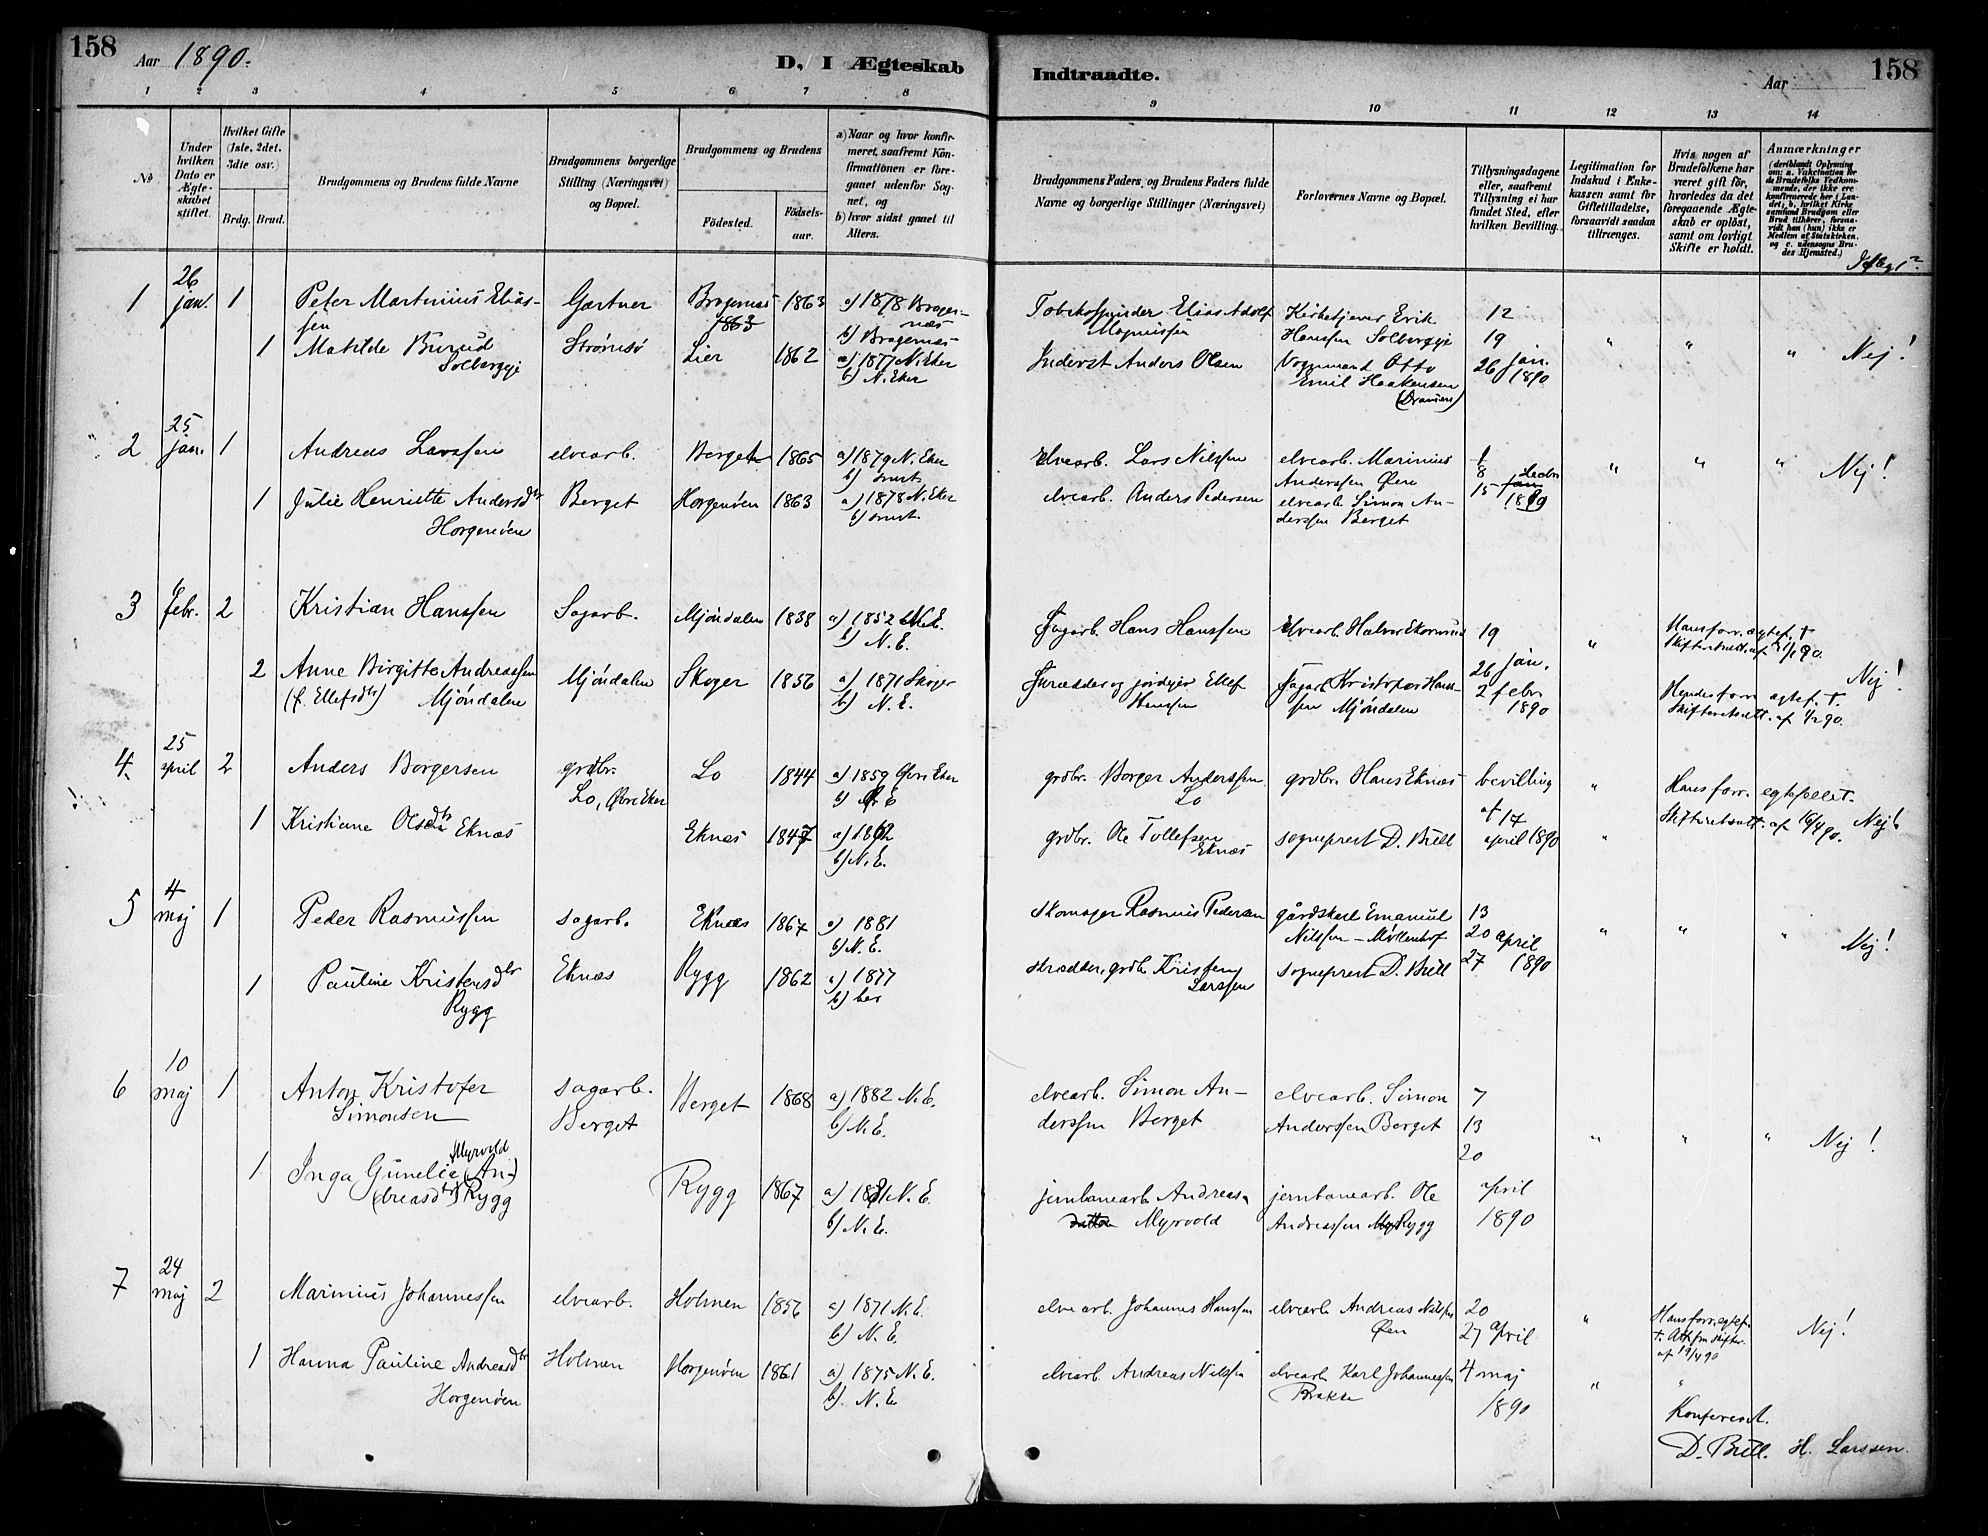 158
Aar 1890.
D, I Ægteskab
Indtraadte.
Aar
158
1 2 3 4 5 6 7 8 9 10 11 12 13 14
No
Under hvilken Dato er Ægteskabet stiftet.
Hvilket Gifte (1ste, 2det, 3die osv.)
Brdg. Brud.
Brudgommens og Brudens fulde Navne
Brudgommens borgerlige Stilling (Næringsvei) og Bopæl.
Brudgommens og Brudens
Fødested.
Fødselsaar.
a) Naar og hvor konfirmeret, saafremt Konfirmationen er foregaaet udenfor Sognet, og
b) hvor sidst gaaet til Alters.
Brudgommens Faders, og Brudens Faders fulde Navne og borgerlige Stillinger (Næringsvei)
Forlovernes Navne og Bopæl.
Tillysningsdagene eller, saafremt Tillysning ei har fundet Sted, efter hvilken Bevilling.
Legitimation for Indskud i Enkekassen samt for Giftetilladelse, forsaavidt saadan tiltrænges.
Hvis nogen af Brudefolkene har været gift før, hvorledes da det foregaaende Ægteskab er opløst, samt om lovligt Skifte er holdt.
Anmærkninger
(deriblandt Oplysning om: a. Vakcination for de Brudefolks Vedkommende, der ikke ere konfirmerede her i Landet, b. hvilket Kirkesamfund Brudgom eller Brud tilhører, forsaavidt han (hun) ikke er Medlem af Statskirken. og c. udensogns Brudes Hjemsted.)
1 26 jan. 1 Peter Martinius Eliassen Gartner Bragernæs 1863 a) 1878 Bragernæs
1863 b) Bragernæs
Elias Adolf Magnussen Kirketjener Erik Hanssen Solbergje 12 19 26 jan. 1890
1 Matilde Burud Solbergje Strømsø Lier 1862 a) 1877 N. Eker b) N. Eker
Inderst Anders Olsen Vognmand Otto Emil Haakensen (Drammen) " " " Nej!
2 25 jan. 1 Andreas Larssen elvearb. Berget 1865 a) 1879 N. Eker
elvearb. Lars Nilssen elvearb. Marinius Anderssen Øen 1 8 15 " " " Nej!
1 Julie Henriette Andersdtr Horgenøen Berget Horgenøen 1863 a) 1878 N. Eker
elvearb. Anders Pedersen elvearb. Simon Anderssen Berget
3 6 febr. 2 Kristian Hanssen Sagarb. Mjøndalen 1838 a) 1852 N. E. b) N. E.
Sagarb. Hans Hanssen elvearb. Halvor 19 26 jan. 2 febr 1890 " Hans forr. ægtef. † Nej!
2 Anne Birgitte Andreassen (f. Ellefsdtr) Mjøndalen Mjøndalen Skoger 1856 a) 1871 Skoger b) N. E.
Ellef Hanssen Sagarb. Kristofer Hanssen Mjøndalen Hendes forr. ægtef. †.
4. 25 april 2 Anders Borgersen grdbr. Lo, Øvre Eker Lo 1844 a) 1859 Øvre Eker b) Ø. E
grdbr. Borger Anderssen Lo grdbr. Hans Eknæs bevilling af 17 april 1890 " Hans forr. egtefelle †. Skifteretsatt. af 16/4 90. Nej!
1 Kristiane Olsdtr Eknæs Eknæs 1847 a) 1862 b) N. E.
grdbr. Ole Tollefsen Eknæs sogneprest D. Brill "
5 4 maj 1 Peder Rasmussen sagarb. Eknæs 1867 a) 1881 b) N. E.
skomager Rasmus Pedersen gårdskarl Emanuel Nilssen - Møllenhof 13 20 april 27 1890 " " " Nej!
1 Pauline Kristensdtr Rygg Eknæs Rygg 1862 a) 1877 b) her
skrædder, grdb. Kristen Larssen sogneprest D. Brill
6 10 maj 1 Anton Kristofer Simonsen sagarb. Berget Berget 1868 a) 1882 N. E. b) N. E.
elvearb. Simon Anderssen Berget elvearb. Simon Anderssen Berget 7 13 20 april 1890 " " " Nej!
1 Inga Gunelie Myrvold (Andreasdtr) Rygg Rygg 1867 a) 1881 N. E. b) N. E.
jernbanearb. Andreas Myrvold jernbanearb. Ole Andreassen Rygg
7 24 maj 2 Marinius Johannessen elvearb. Holmen 1856 a) 1871 N. E. b) N. E.
elvearb. Johannes Hanssen elvearb. Andreas Nilssen Øen 20 27 april 4 maj 1890 " Hans forr. egtef. †. Att. fra skifter. af 19/4 90 Nej!
1 Hanna Pauline Andreasdtr Horgenøen Holmen Horgenøen 1861 a) 1875 N. E. b). N. E
elvearb. Andreas Nilssen elvearb. Karl Johannessen " "
Konfereret.
D. Brill. H. Larssen.